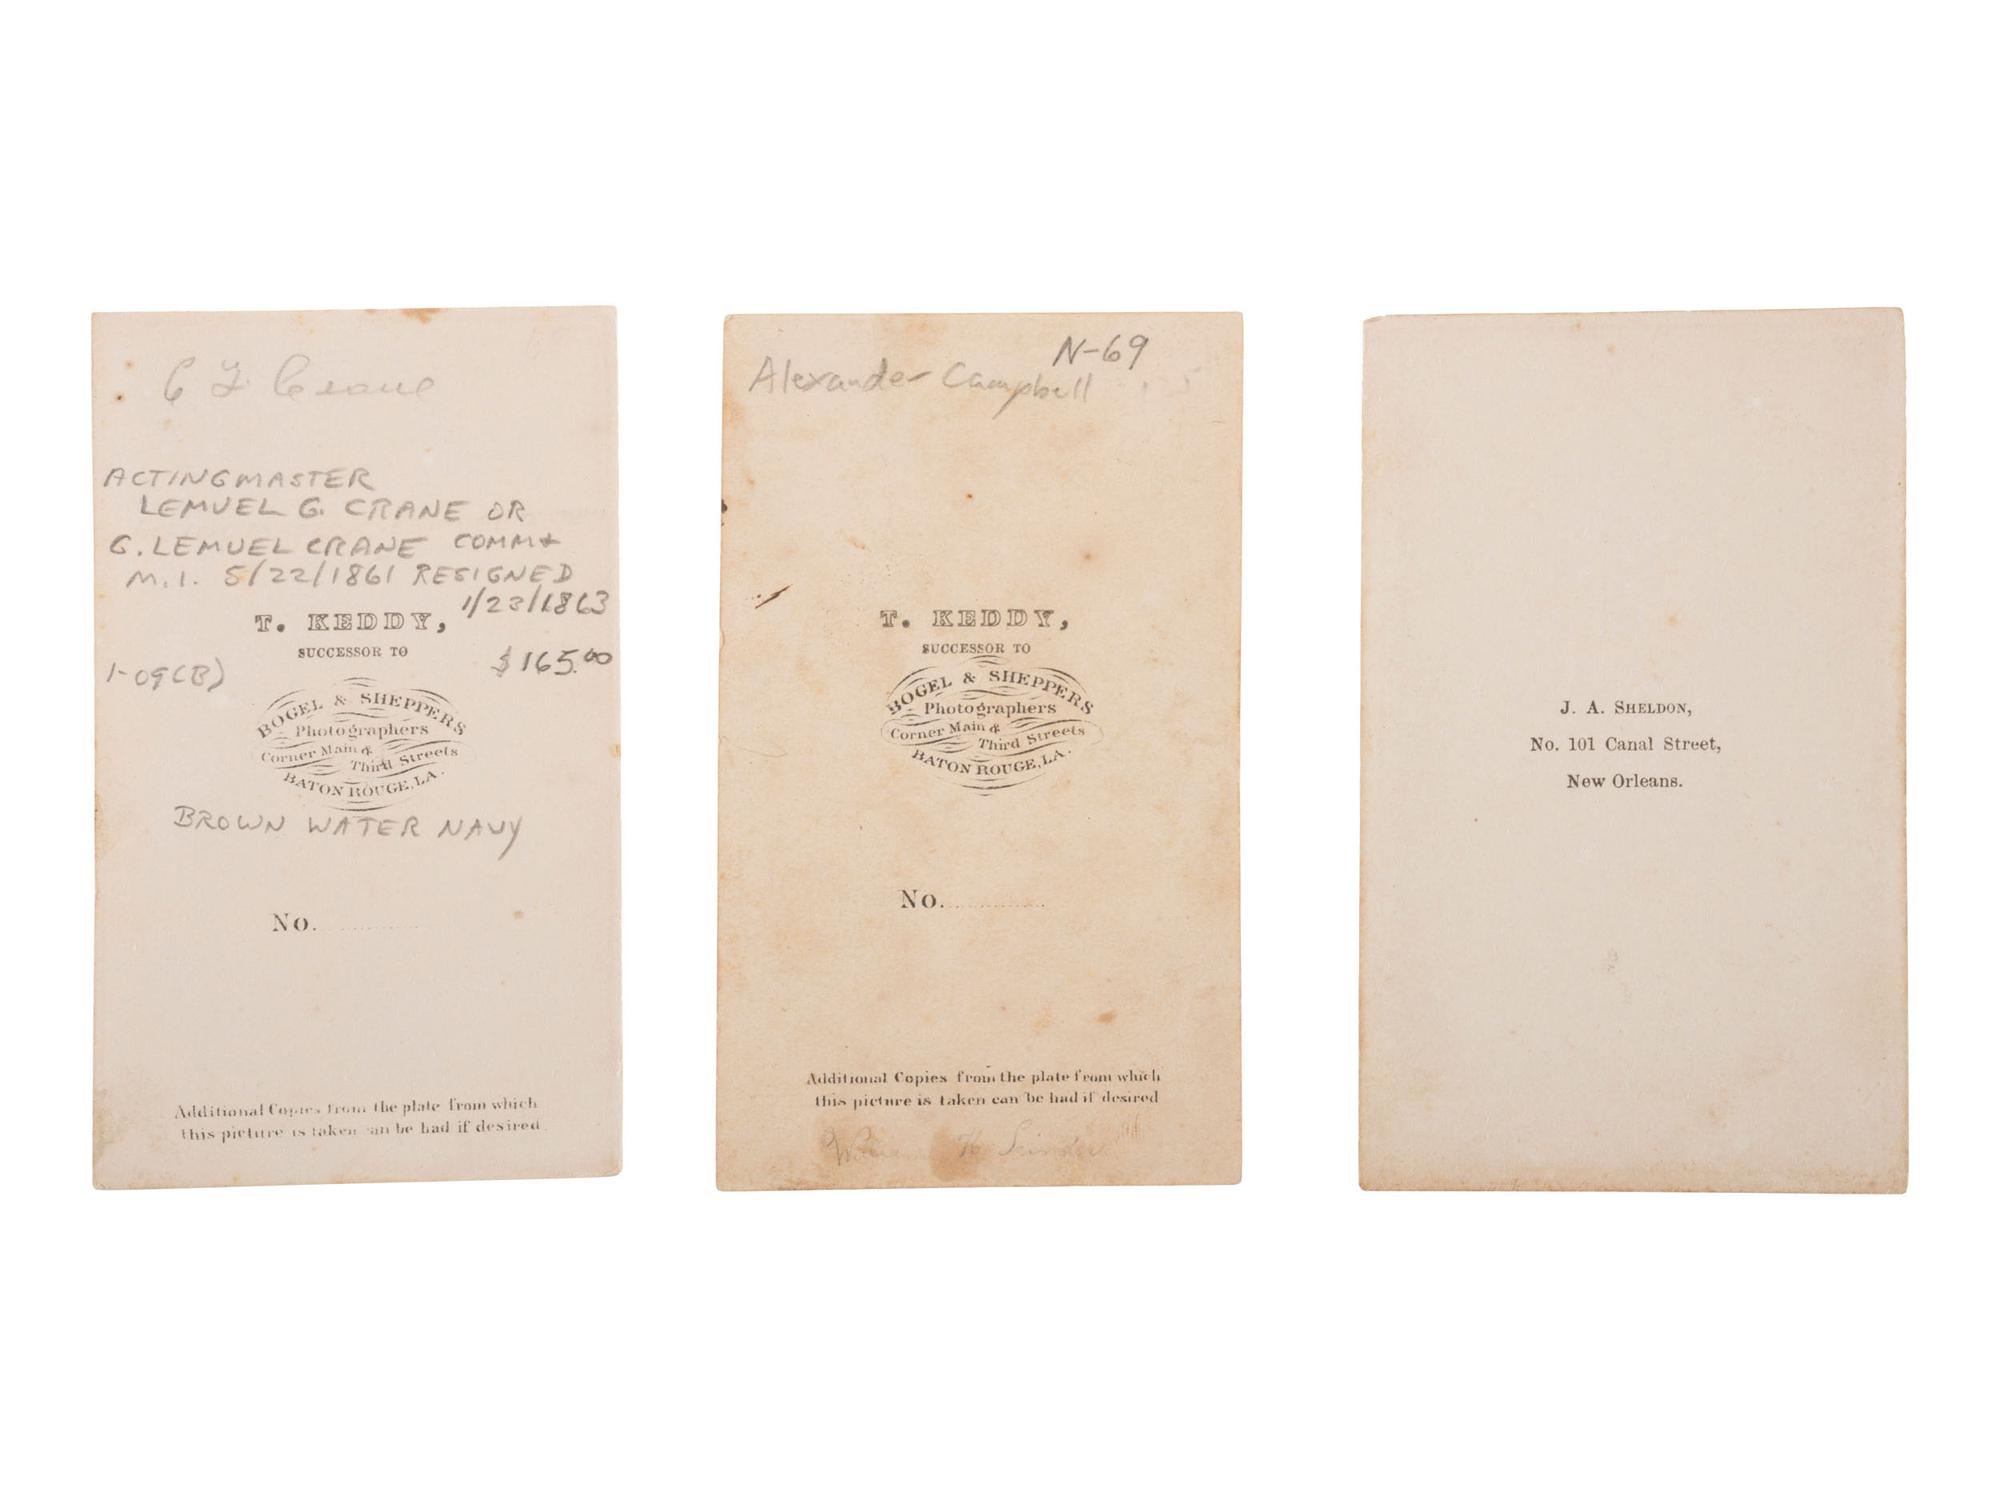 Crane
ACTING MASTER
LEMUEL G. CRANE OR
G. LEMUEL CRANE COMM
M.I. 5/22/1861 RESIGNED
1/23/1863
T. KEDDY,
SUCCESSOR TO
1-09(B)
$165.00
BOGEL & SHEPPERS
Photographers
Corner Main &
Third Streets
BATON ROUGE, LA.
BROWN WATER NAVY
No.
Additional Copies from the plate from which
this picture is taken can be had if desired.
N-69
Alexander Campbell
T. KEDDY,
SUCCESSOR TO
BOGEL & SHEPPERS
Photographers
Corner Main &
Third Streets
BATON ROUGE, LA.
No.
Additional Copies from the plate from which
this picture is taken can be had if desired
J. A. SHELDON,
No. 101 Canal Street,
New Orleans.